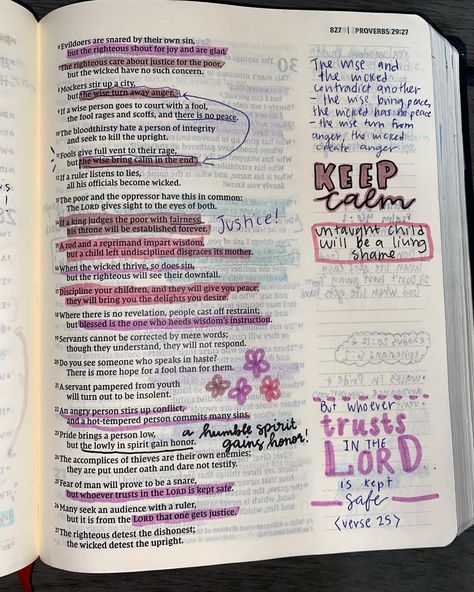 827 | PROVERBS 29:27
6 Evildoers are snared by their own sin,
but the righteous shout for joy and are glad.
7 The righteous care about justice for the poor,
but the wicked have no such concern.
8 Mockers stir up a city,
but the wise turn away anger.
9 If a wise person goes to court with a fool,
the fool rages and scoffs, and there is no peace.
10 The bloodthirsty hate a person of integrity
and seek to kill the upright.
11 Fools give full vent to their rage,
but the wise bring calm in the end.
12 If a ruler listens to lies,
all his officials become wicked.
13 The poor and the oppressor have this in common:
The LORD gives sight to the eyes of both.
14 If a king judges the poor with fairness,
his throne will be established forever.
Justice!
15 A rod and a reprimand impart wisdom,
but a child left undisciplined disgraces its mother.
16 When the wicked thrive, so does sin,
but the righteous will see their downfall.
17 Discipline your children, and they will give you peace;
they will bring you the delights you desire.
18 Where there is no revelation, people cast off restraint;
but blessed is the one who heeds wisdom's instruction.
19 Servants cannot be corrected by mere words;
though they understand, they will not respond.
20 Do you see someone who speaks in haste?
There is more hope for a fool than for them.
21 A servant pampered from youth
will turn out to be insolent.
22 An angry person stirs up conflict,
and a hot-tempered person commits many sins.
23 Pride brings a person low,
but the lowly in spirit gain honor.
a humble spirit
gains honor!
24 The accomplices of thieves are their own enemies;
they are put under oath and dare not testify.
25 Fear of man will prove to be a snare,
but whoever trusts in the LORD is kept safe.
26 Many seek an audience with a ruler,
but it is from the LORD that one gets justice.
27 The righteous detest the dishonest;
the wicked detest the upright.
The wise and
the wicked
contradict another
- the wise bring peace,
the wicked has no peace
- the wise turn from
anger, the wicked
create anger
KEEP
calm
untaught child
will be a living
shame
But whoever
trusts
IN THE
LORD
is kept
safe
<verse 25>